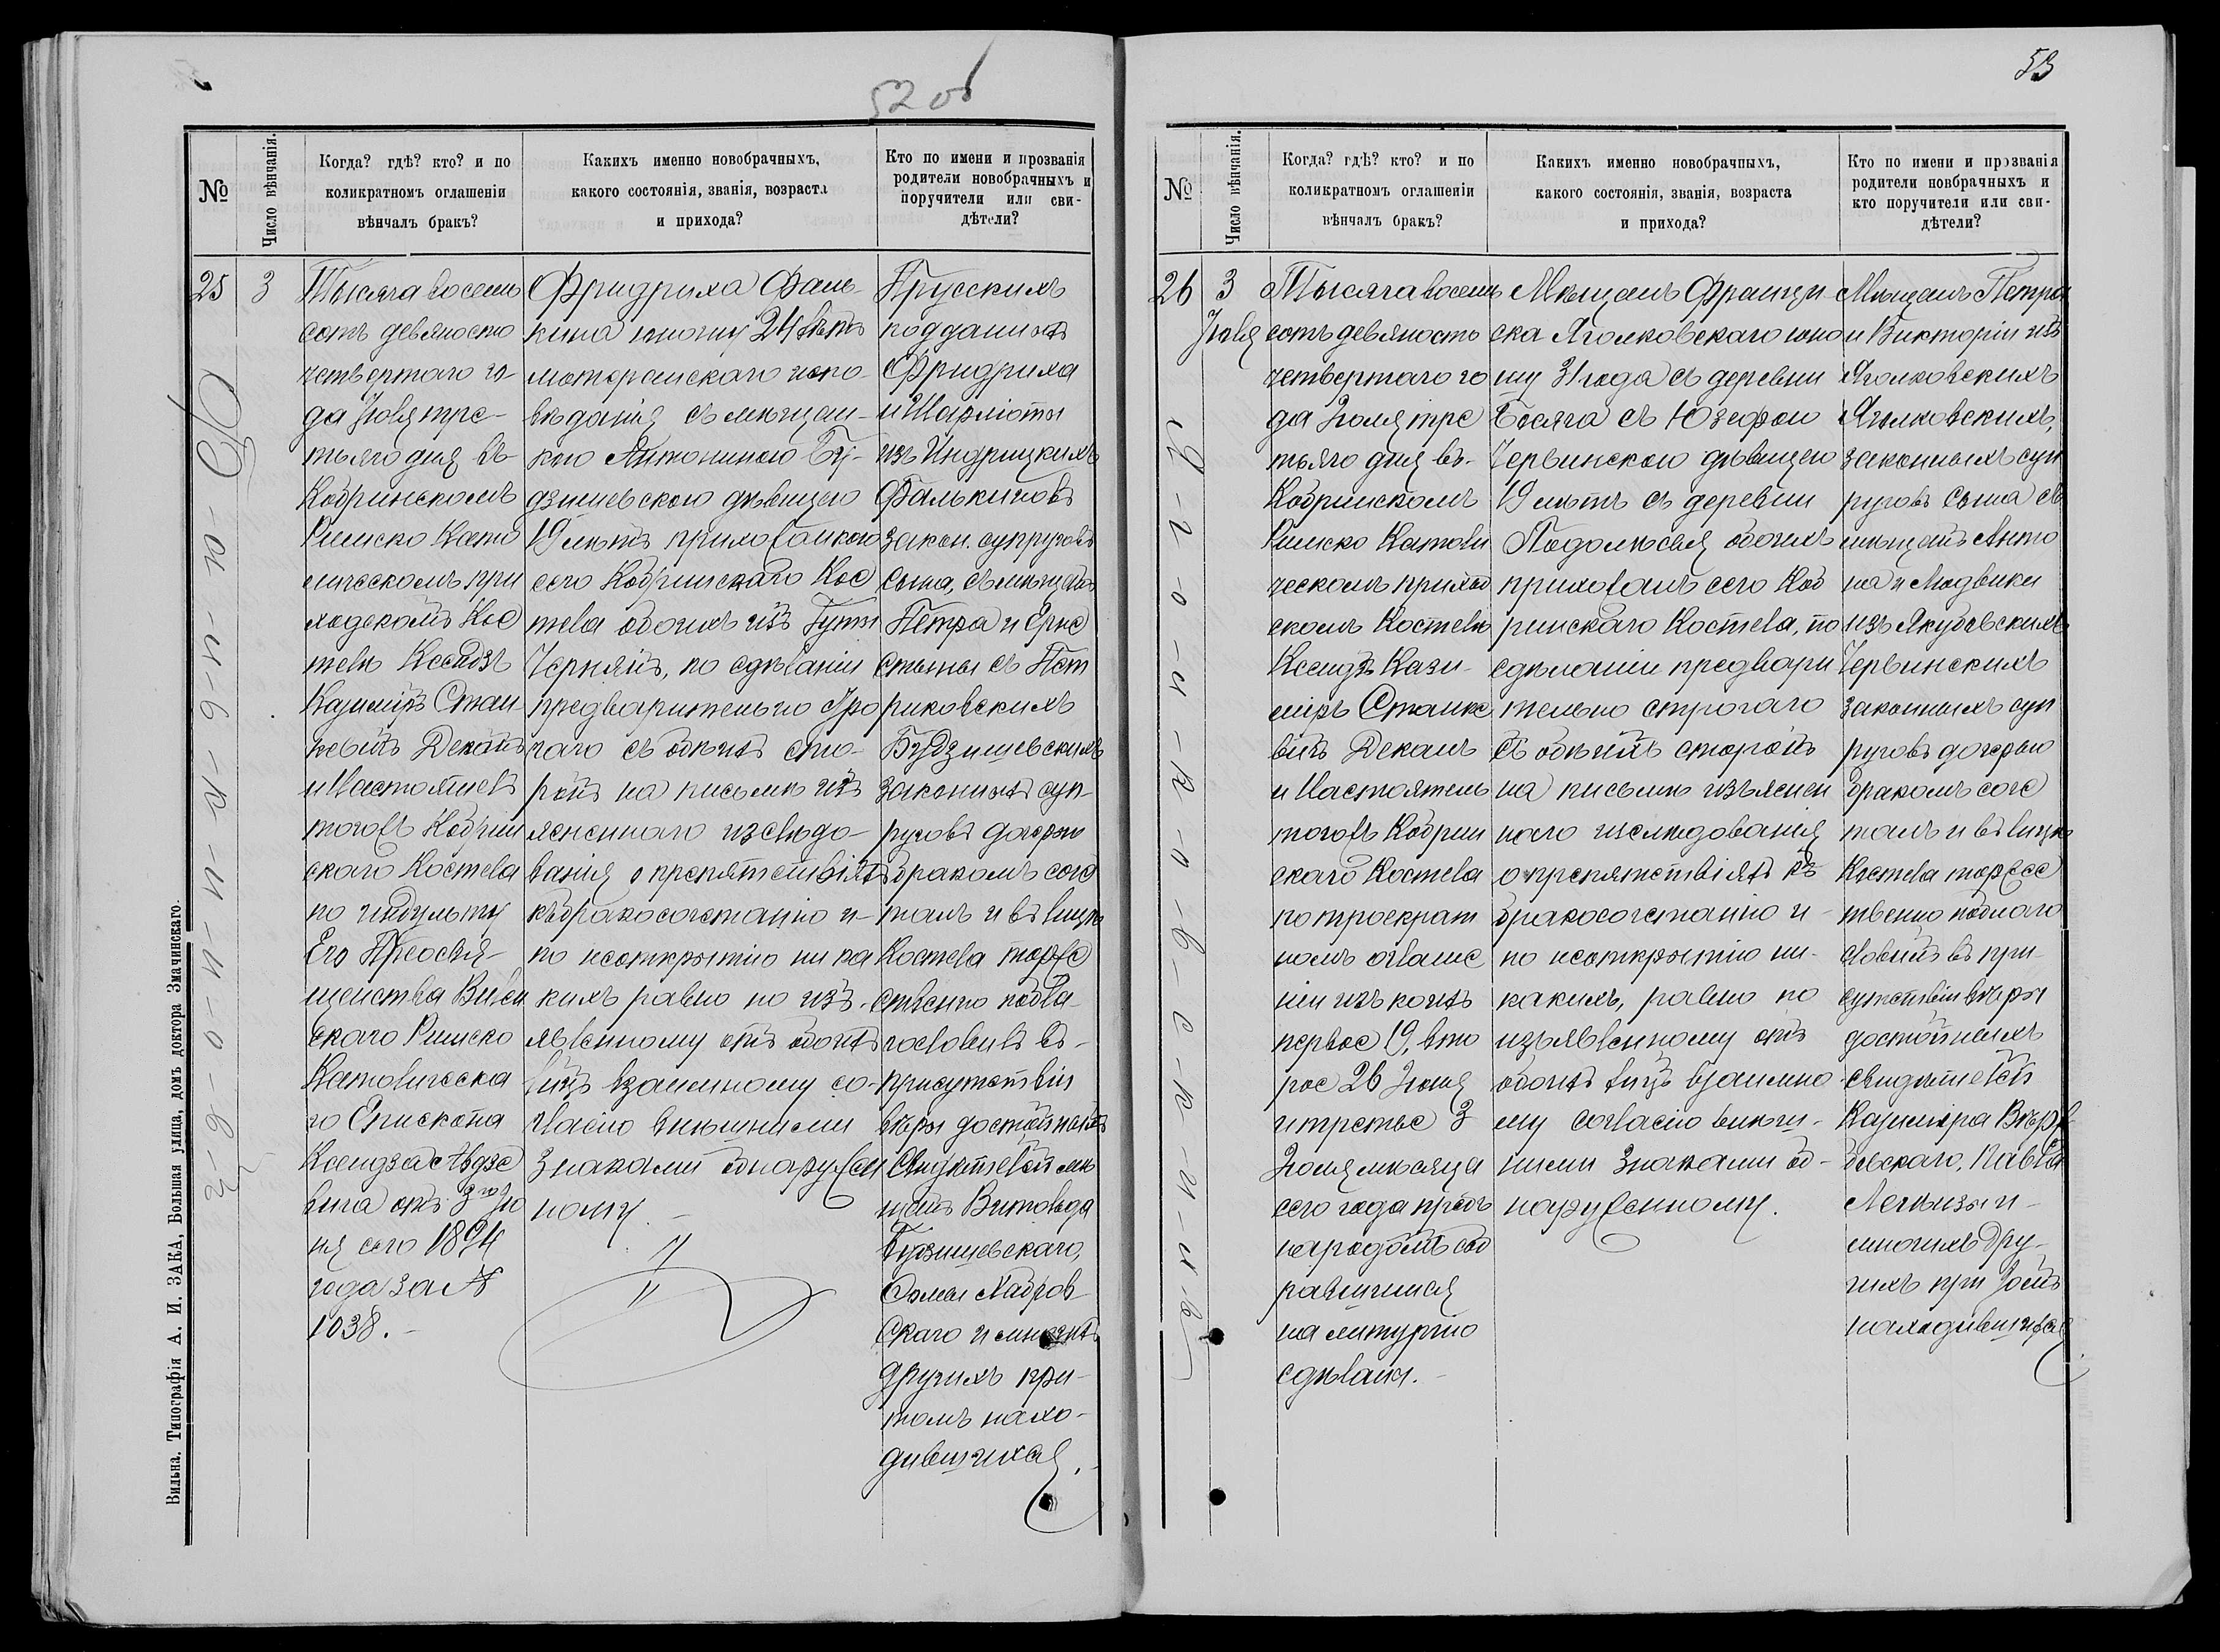 52 об
53
№
Число вѣнчанія.
Когда? гдѣ? кто? и по
коликратномъ оглашеніи
вѣнчалъ бракъ?
Какихъ именно новобрачныхъ,
какого состоянія, званія, возраста
и прихода?
Кто по имени и прозванія
родители новобрачныхъ и
поручители или сви-
дѣтели?
25
3
Ф-а-л-ь-к-и-н-о-в-ъ
Тысяча восемь
сотъ девяносто
четвертаго го-
да Іюля тре-
тьяго дня въ
Кобринскомъ
Римско Като
лическомъ при
ходскомъ Кос
телѣ Ксендзъ
Казиміръ Стан
кевичъ Деканъ
и Настоятель
тогожъ Кобрин
скаго Костела
по индульту
Его Преосвя-
щенства Вилен
скаго Римско
Католическа
го Епископа
Ксендза Авдзе
вича отъ 3го Ію
ня сего 1894
года за №
1038. -
Фридриха Фаль-
кина юношу 24 лѣтъ
лютеранскаго испо-
вѣданія съ мѣщан-
кою Антониною Бу-
дзишевскою дѣвицею
19 лѣтъ прихожанкою
сего Кобринскаго Кос
тела обоихъ изъ Гуты
Чернянъ, по сдѣланіи
предварительно стро
гаго съ обѣихъ сто-
ронъ на письмѣ изъ
ясненнаго изслѣдо-
ванія о препятствіяхъ
къ бракосочетанію и
по неоткрытію ни ка
кихъ равно по изъ-
явленному отъ обоихъ
лицъ взаимному со-
гласію внѣшними
знаками обнаружен
ному. -
Прусскихъ
подданныхъ
Фридриха
и Шарлоты
изъ Индрицкихъ
Фалькиновъ
закон. супруговъ
сына, съ мѣщанъ
Петра и Ерне
стины съ Пет
риковскихъ
Будзишевскихъ
законныхъ суп-
руговъ дочерью
бракомъ соче
талъ и въ лицѣ
Костела торже
ственно подбла-
гословилъ въ
присутствіи
вѣры достойныхъ
свидѣтелей мѣ
щанъ Витольда
Будзишевскаго,
Фомы Хабров
скаго и многихъ
другихъ при-
томъ нахо-
дившихся.
Вильна. Типографія А. И. ЗАКА, Большая улица, домъ доктора Змачинскаго.
№
Число вѣнчанія.
Когда? гдѣ? кто? и по
коликратномъ оглашеніи
вѣнчалъ бракъ?
Какихъ именно новобрачныхъ,
какого состоянія, званія, возраста
и прихода?
Кто по имени и прозванія
родители новбрачныхъ и
кто поручители или сви-
дѣтели?
26
3
Іюля
Тысяча восемь
сотъ девяносто
четвертаго го
да Іюля тре
тьяго дня въ
Кобринскомъ
Римско Католи
ческомъ приход
скомъ Костелѣ
Ксендзъ Кази-
міръ Станке
вичъ Деканъ
и Настоятель
тогожъ Кобрин
скаго Костела
по троекрат
номъ оглаше
ніи изъ коихъ
первое 19, вто
рое 26 Іюня
и третье 3
Іюля мѣсяца
сего года предъ
народомъ соб
равшимся
на литургію
сдѣланы. -
Мѣщанъ Францы-
ска Яголковскаго юно
шу 31 года съ деревни
Босяча съ Юзефою
Червинскою дѣвицею
19 лѣтъ съ деревни
Подолѣсья обоихъ
прихожанъ сего Коб
ринскаго Костела, по
сдѣланіи предвари
тельно строгаго
съ обѣихъ сторонъ
на письмѣ изъяснен
наго изслѣдованія
о препятствіяхъ къ
бракосочетанію и
по неоткрытію ни-
какихъ, равно по
изъявленному отъ
обоихъ лицъ взаимно
му согласію внѣш-
ними знаками об-
наруженному.
Мѣщанъ Петра
и Викторіи изъ
Яголковскихъ,
законныхъ суп
руговъ сына съ
мѣщанъ Анто
на и Людвики
изъ Якубовскихъ
Червинскихъ
законныхъ суп
руговъ дочерью
бракомъ соче
талъ и въ лицѣ
Костела торже
твенно подблаго
словилъ въ при
сутствіи вѣры
достойныхъ
свидѣтелей
Казиміра Вѣрж
бовскаго, Павла
и
многихъ дру-
гихъ при томъ
находившихся.